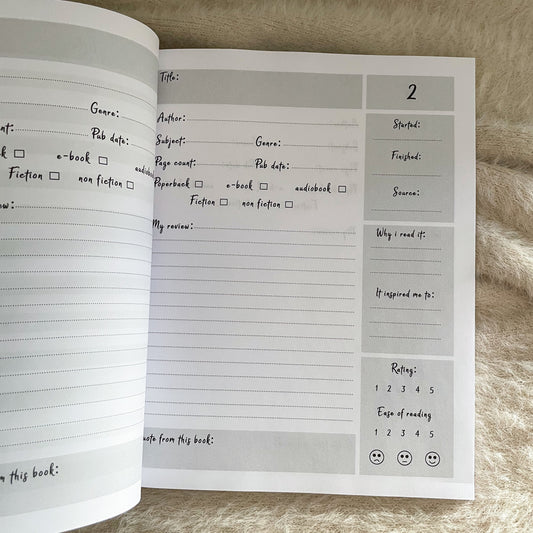 Genre:
nt:
Pub date:
k
e-book
audiobook
Fiction
non fiction
ew:
m this book:
Title:
2
Author:
Subject:
Genre:
Page count:
Pub date:
Paperback
e-book
audiobook
Fiction
non fiction
My review:
uote from this book:
Started:
Finished:
Source:
Why i read it:
It inspired me to:
Rating:
1 2 3 4 5
Ease of reading
1 2 3 4 5